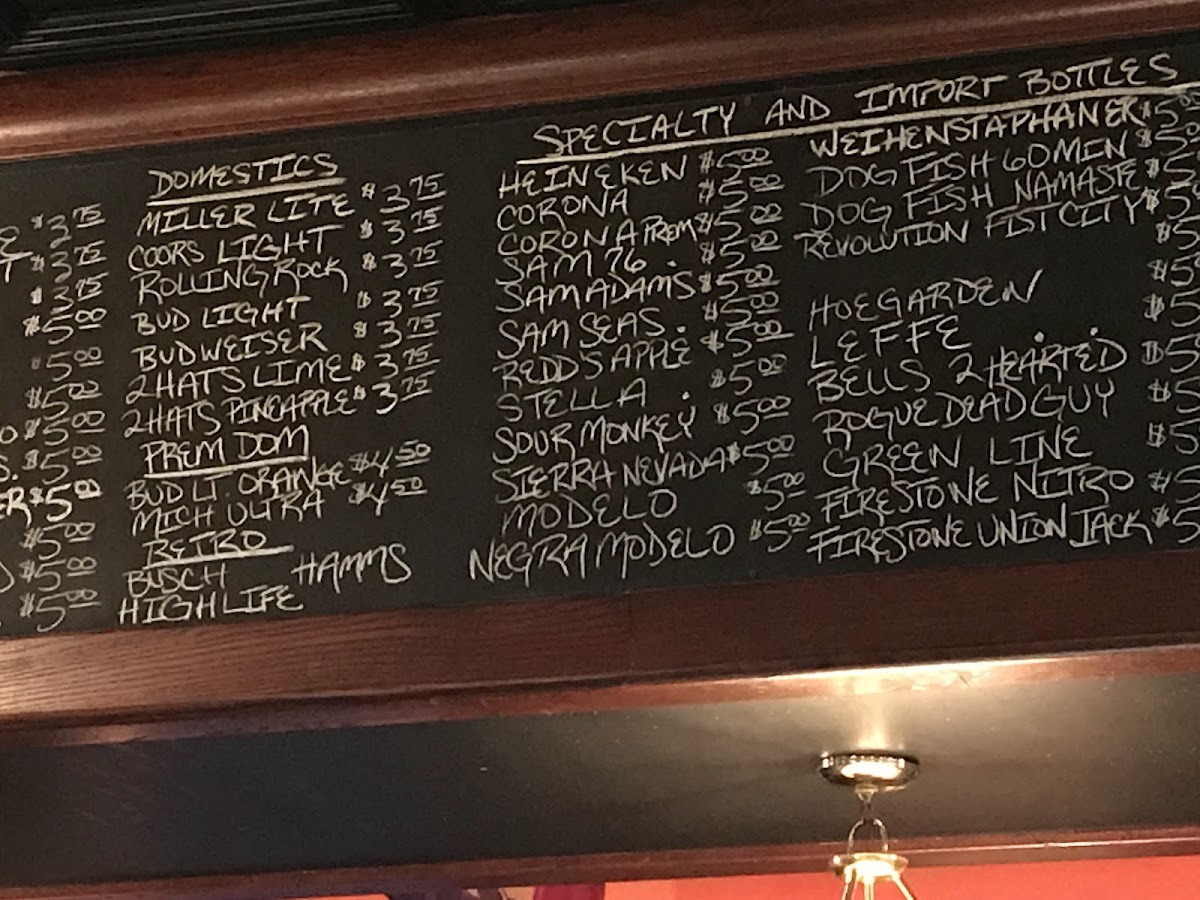 E $3.75
T $3.75
$3.75
$5.00
5.00
$5.00
O $5.00
S. $5.00
ER $5.00
$5.00
O $5.00
$5.00
DOMESTICS
MILLER LITE $3.75
COORS LIGHT $3.75
ROLLING ROCK $3.75
BUD LIGHT $3.75
BUDWEISER $3.75
2HATS LIME $3.75
2HATS PINEAPPLE $3.75
PREM DOM
BUD LT. ORANGE $4.50
MICH ULTRA $4.50
RETRO
BUSCH HAMMS
HIGH LIFE
SPECIALTY AND IMPORT BOTTLES
HEINEKEN $5.00
CORONA $5.00
CORONA PREM $5.00
SAM 76 $5.00
SAM ADAMS $5.00
SAM SEAS. $5.00
REDD'S APPLE $5.00
STELLA $5.00
SOUR MONKEY $5.00
SIERRA NEVADA $5.00
MODELO $5.00
NEGRA MODELO $5.00
WEIHENSTAPHANER $5.00
DOG FISH 60 MIN $5.0
DOG FISH NAMASTE $5
REVOLUTION FIST CITY $5
$5
HOEGARDEN $5
LEFFE $5
BELLS 2 HEARTED $5
ROGUE DEAD GUY $5
GREEN LINE $5
FIRESTONE NITRO $5
FIRESTONE UNION JACK $5